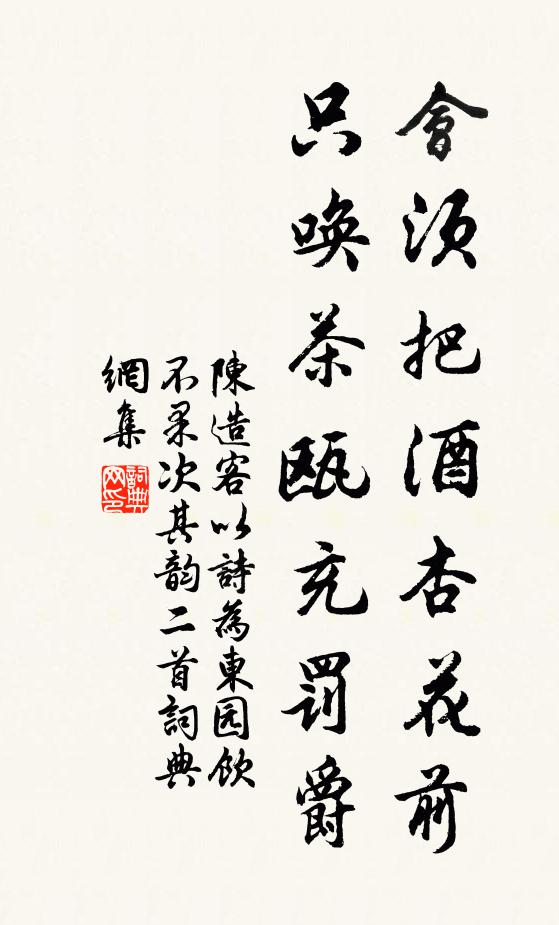 會須把酒杏花前
只喚茶瓯充罰爵
陳造客以詩為東园飲
不果次其韵二首詞典
網集
詞典
网印